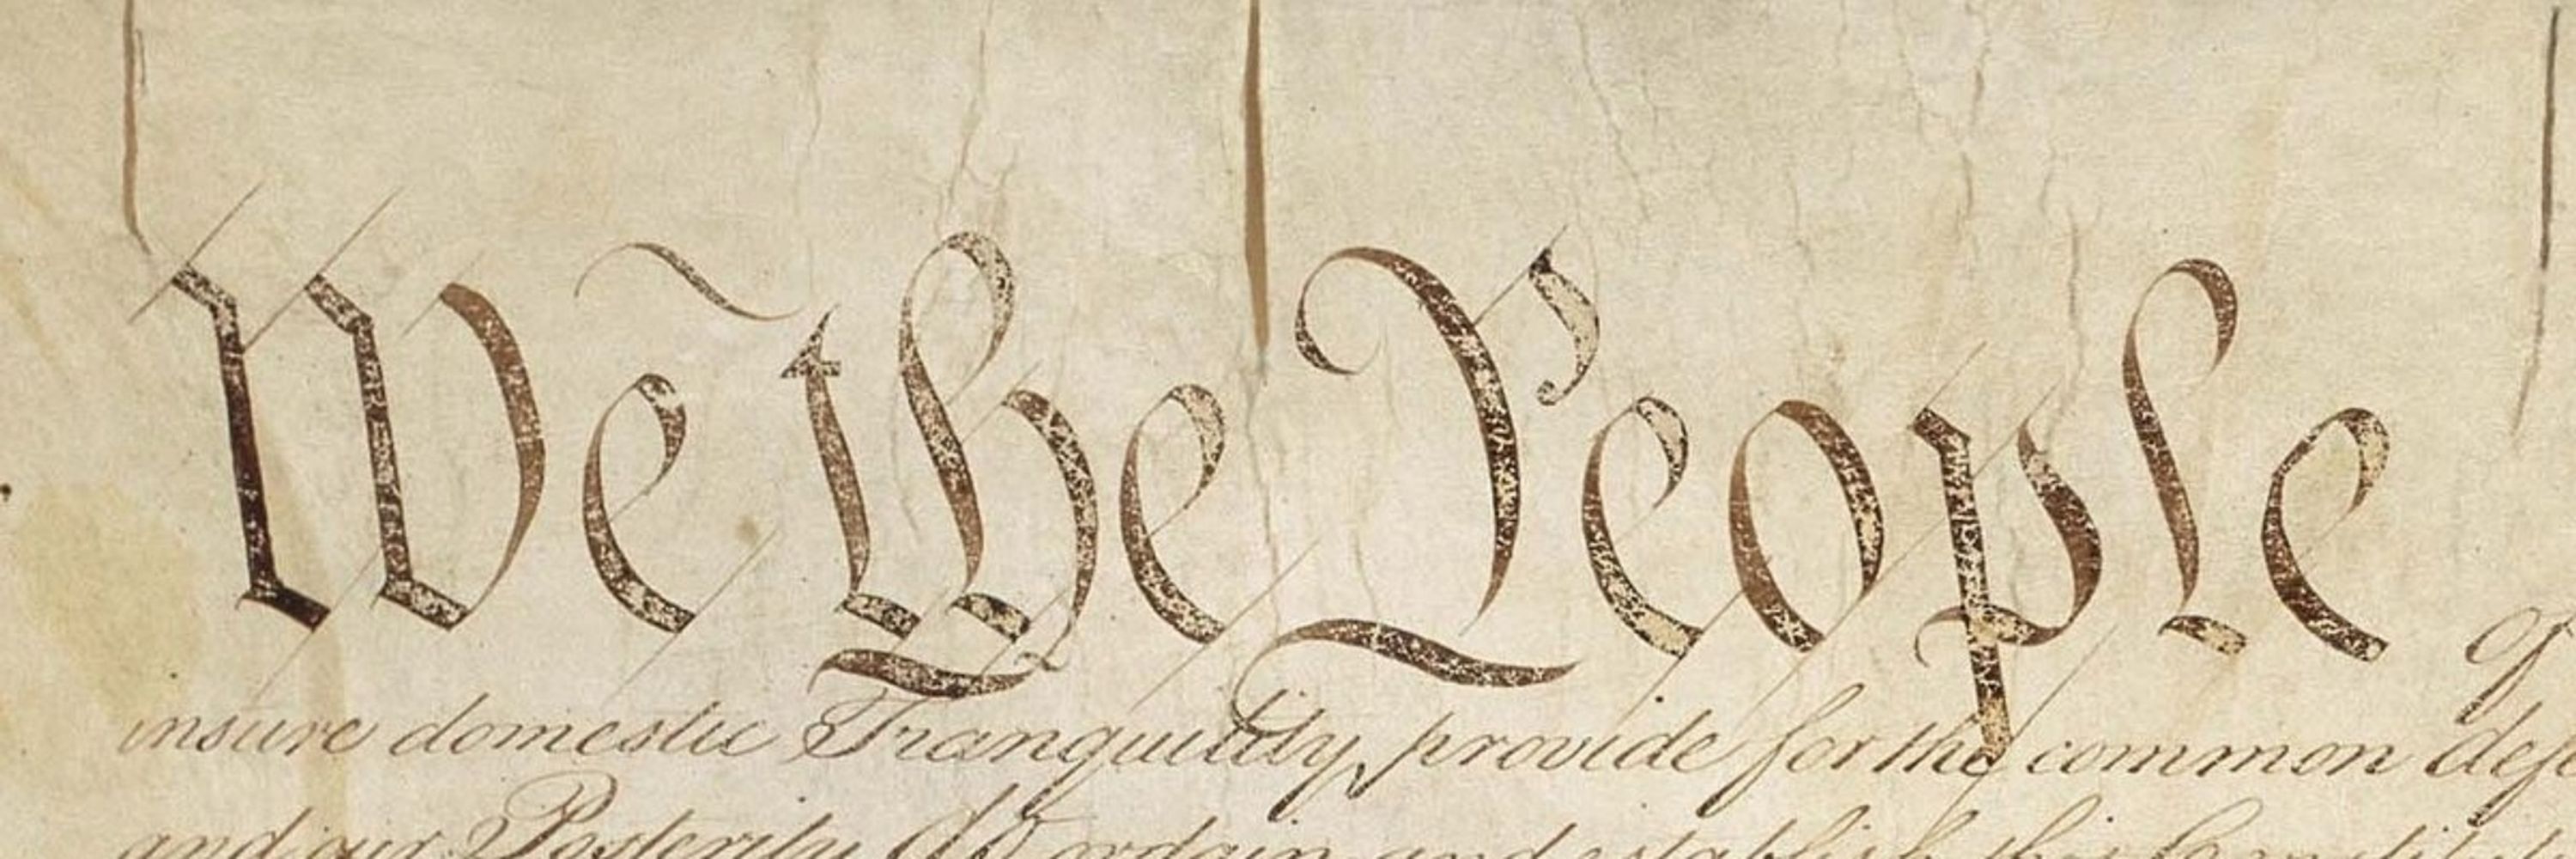 We the People
insure domestic Tranquility, provide for the common def
and our Posterity, do ordain and establish this Constit